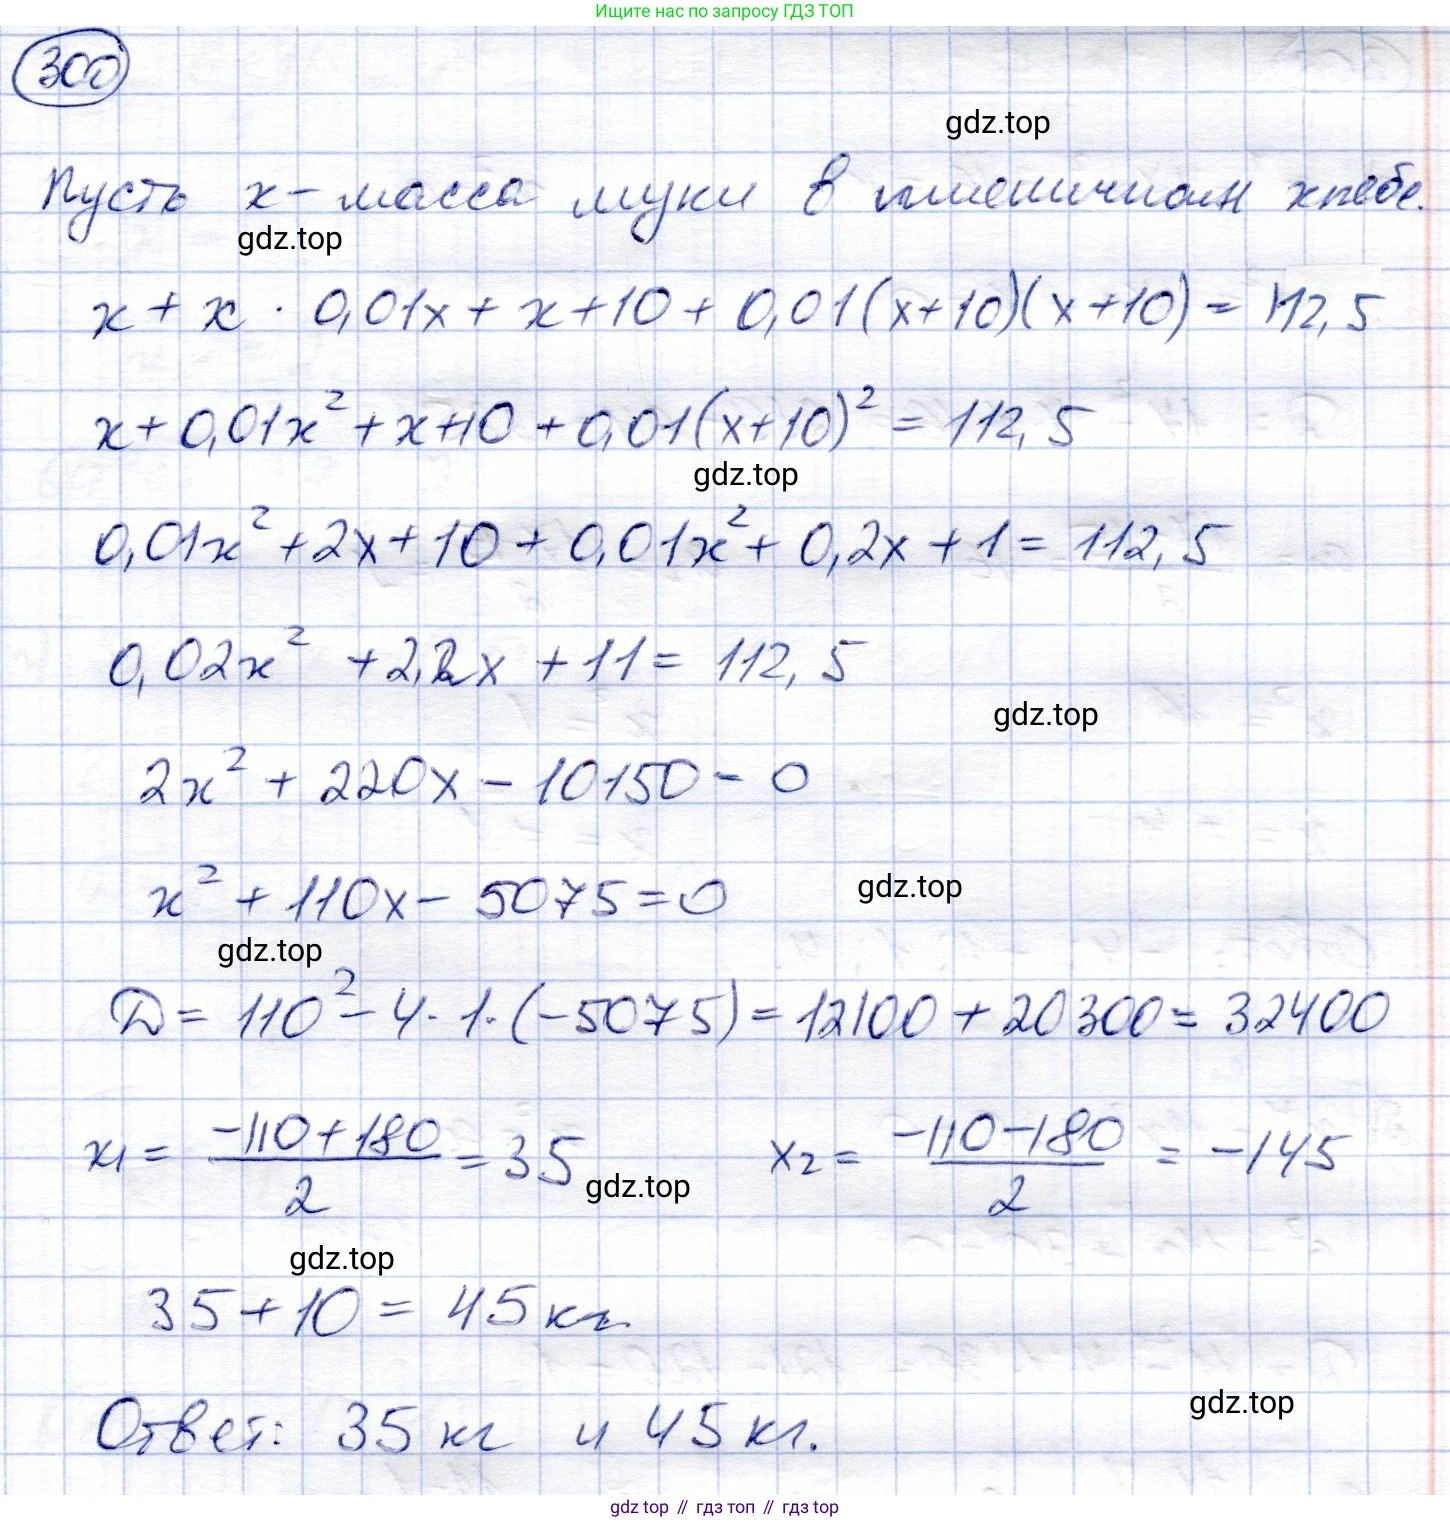 Ищите нас по запросу ГДЗ ТОП
300
gdz.top
Пусть x - масса муки в пшеничном хлебе.
gdz.top
x + x · 0,01x + x + 10 + 0,01(x+10)(x+10) = 112,5
x + 0,01x² + x + 10 + 0,01(x+10)² = 112,5
gdz.top
0,01x² + 2x + 10 + 0,01x² + 0,2x + 1 = 112,5
0,02x² + 2,2x + 11 = 112,5
gdz.top
2x² + 220x - 10150 = 0
x² + 110x - 5075 = 0
gdz.top
gdz.top
D = 110² - 4 · 1 · (-5075) = 12100 + 20300 = 32400
x₁ = (-110+180)/2 = 35 x₂ = (-110-180)/2 = -145
gdz.top
gdz.top
35 + 10 = 45 кг.
gdz.top
Ответ: 35 кг и 45 кг.
gdz top // гдз топ // гдз top